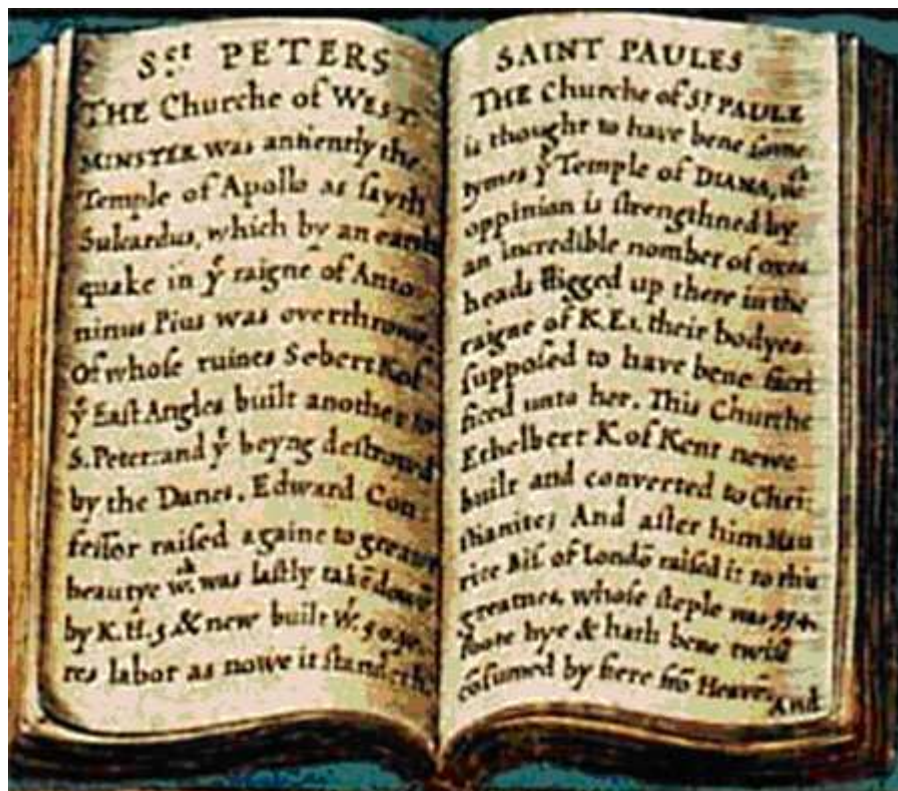 Sct PETERS
THE Churche of WEST
MINSTER was antiently the
Temple of Apollo as sayth
Sulcardus, which by an earth
quake in yͤ raigne of Anto
ninus Pius was overthrowē,
Of whose ruines Sebert K of
yͤ East Angles built another to
S. Peter: and yͭ beyng destroyed
by the Danes, Edward Con
fessor raised againe to greater
beautye wͨͪ was lastly takē downe
by K. H. 3 & new built wͭ 50 ye
res labor as nowe it standeth.
SAINT PAULES
THE Churche of Sͭ PAULE
is thought to have bene some
tymes yͤ Temple of DIANA, wͨͪ
oppinion is strengthned by
an incredible nomber of oxes
heads digged up there in the
raigne of K. E1. their bodyes
supposed to have bene sacri
ficed unto her. This Churche
Ethelbert K of Kent newe
built and converted to Chri:
stianite; And after him Mau
rice Bis. of Londō raised it to this
greatnes, whose steple was 534.
foote hye & hath bene twise
cōsumed by fiere frō Heavē,
And